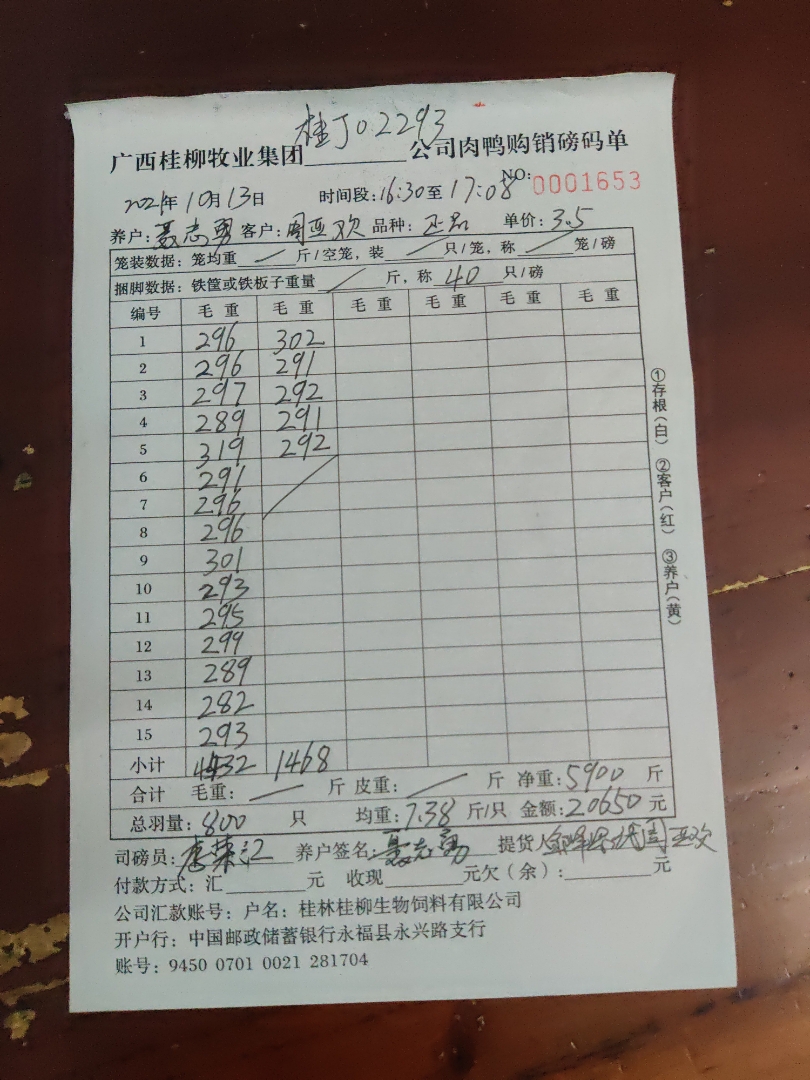 桂J02293
广西桂柳牧业集团________公司肉鸭购销磅码单
NO: 0001653
2021年10月13日 时间段:16:30至17:08
养户:聂志勇 客户:周亚欢 品种:正品 单价:3.5
笼装数据:笼均重 / 斤/空笼,装 / 只/笼,称 / 笼/磅
捆脚数据:铁筐或铁板子重量 / 斤,称 40 只/磅
编号 毛重 毛重 毛重 毛重 毛重 毛重
1 296 302
2 296 291
3 297 292
4 289 291
5 319 292
6 291
7 296
8 296
9 301
10 293
11 295
12 299
13 289
14 282
15 293
小计 4432 1468
合计 毛重: / 斤 皮重: / 斤 净重:5900 斤
总羽量:800 只 均重:7.38 斤/只 金额:20650元
司磅员: 养户签名:聂志勇 提货人 周亚欢
付款方式:汇________元 收现________元欠(余):________元
公司汇款账号:户名:桂林桂柳生物饲料有限公司
开户行:中国邮政储蓄银行永福县永兴路支行
账号:9450 0701 0021 281704
①存根(白) ②客户(红) ③养户(黄)